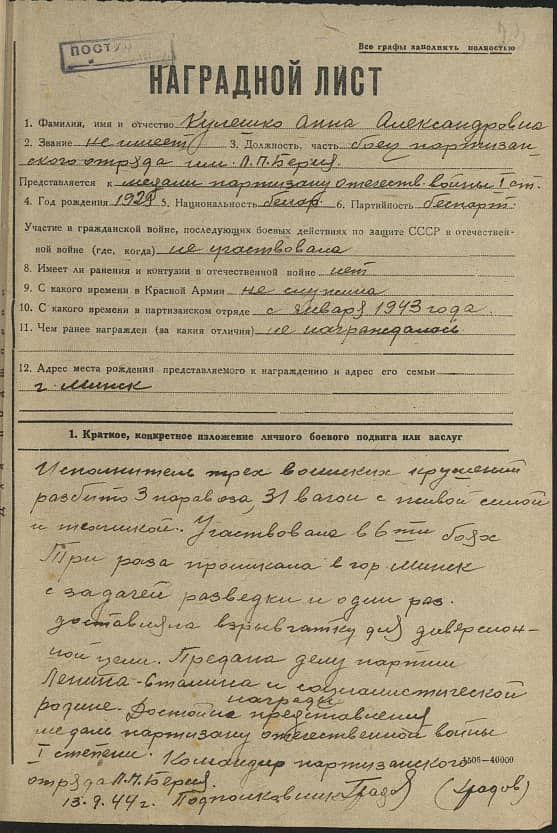 ПОСТУ
Все графы заполнить полностью
НАГРАДНОЙ ЛИСТ
1. Фамилия, имя и отчество Кулешко Анна Александровна
2. Звание не имеет 3. Должность, часть боец партизан-
ского отряда им. Л.П. Берия.
Представляется к медали партизану отечеств. войны I ст.
4. Год рождения 5. Национальность белор. 6. Партийность беспарт.
Участие в гражданской войне, последующих боевых действиях по защите СССР и отечествен-
ной войне (где, когда) не участвовала
8. Имеет ли ранения и контузии в отечественной войне нет
9. С какого времени в Красной Армии не служила
10. С какого времени в партизанском отряде с января 1943 года.
11. Чем ранее награжден (за какия отличия) не награждалась
12. Адрес места рождения представляемого к награждению и адрес его семьи
г. Минск
1. Краткое, конкретное изложение личного боевого подвига или заслуг
Исполнитель трех воинских крушений
разбито 3 паравоза, 31 вагон с живой силой
и техникой. Участвовала в 6ти боях
Три раза проникала в гор. Минск
с задачей разведки и один раз.
доставляла взрывчатку для диверсион-
ной цели. Предана делу партии
Ленина-Сталина и социалистической
родине. Достойна представления награды
медаль партизану отечественной войны
I степени. Командир партизанского
отряда Л.П. Берия.
1505-40000
13.9.44г. Подполковник Градов (Градов)